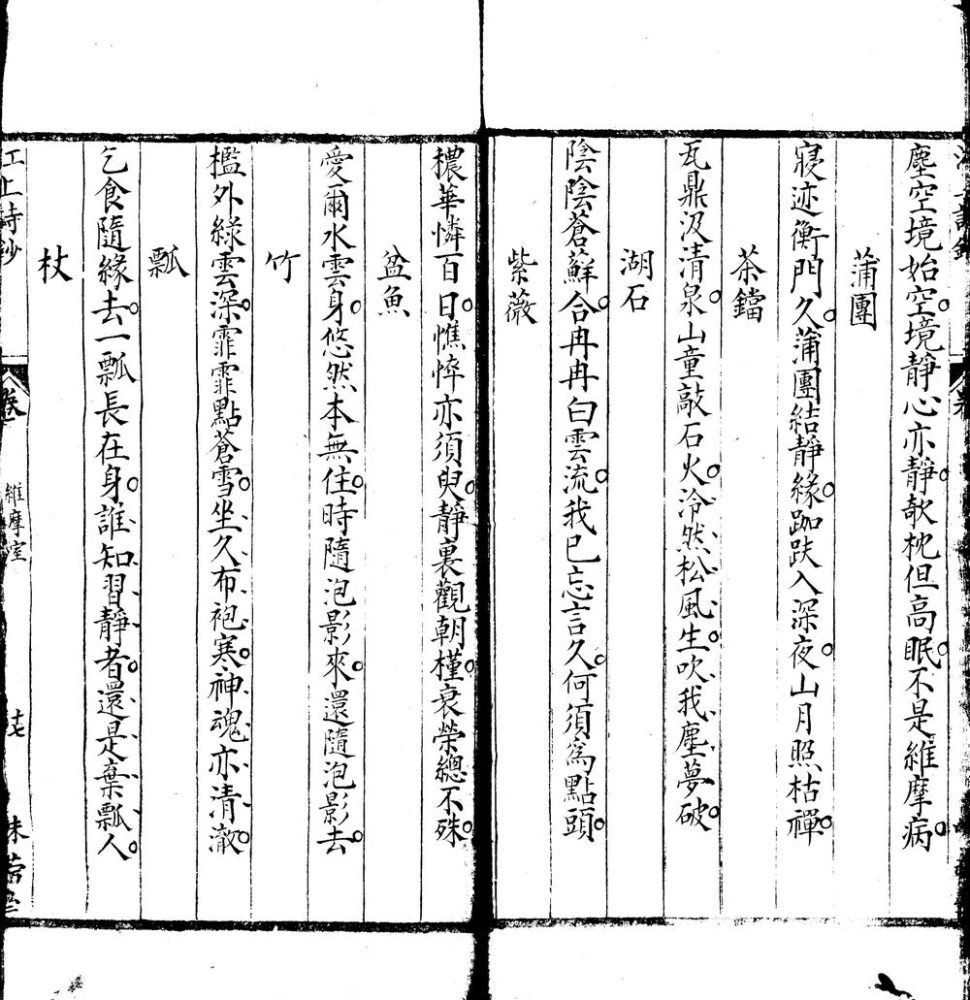 塵空境始空境靜心亦靜欹枕但高眠不是維摩病
蒲團
寢迹衡門久蒲團結靜緣跏趺入深夜山月照枯禪
茶鐺
瓦鼎汲清泉山童敲石火泠然松風生吹我塵夢破
湖石
陰陰蒼蘚合冉冉白雲流我已忘言久何須爲點頭
紫薇
穠華憐百日憔悴亦須臾靜裏觀朝槿衰榮總不殊
盆魚
愛爾水雲身悠然本無住時隨泡影來還隨泡影去
竹
檻外綠雲深霏霏點蒼雪坐久布袍寒神魂亦清澈
瓢
乞食隨緣去一瓢長在身誰知習靜者還是棄瓢人
杖
江上詩鈔
卷
維摩室